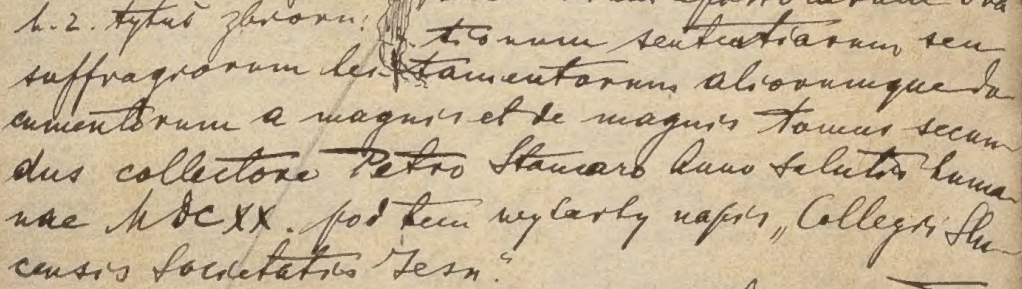 k. 2. tytuł zbioru:
tionum sententiarum seu
suffragiorum testamentorum aliorumque do
cumentorum a magnis et de magnis tomus secun
dus collectore Petro Stancaro Anno Salutis huma
nae MDCXX. pod tem wytarty napis „Collegii Slu
censis Societatis Jesu."